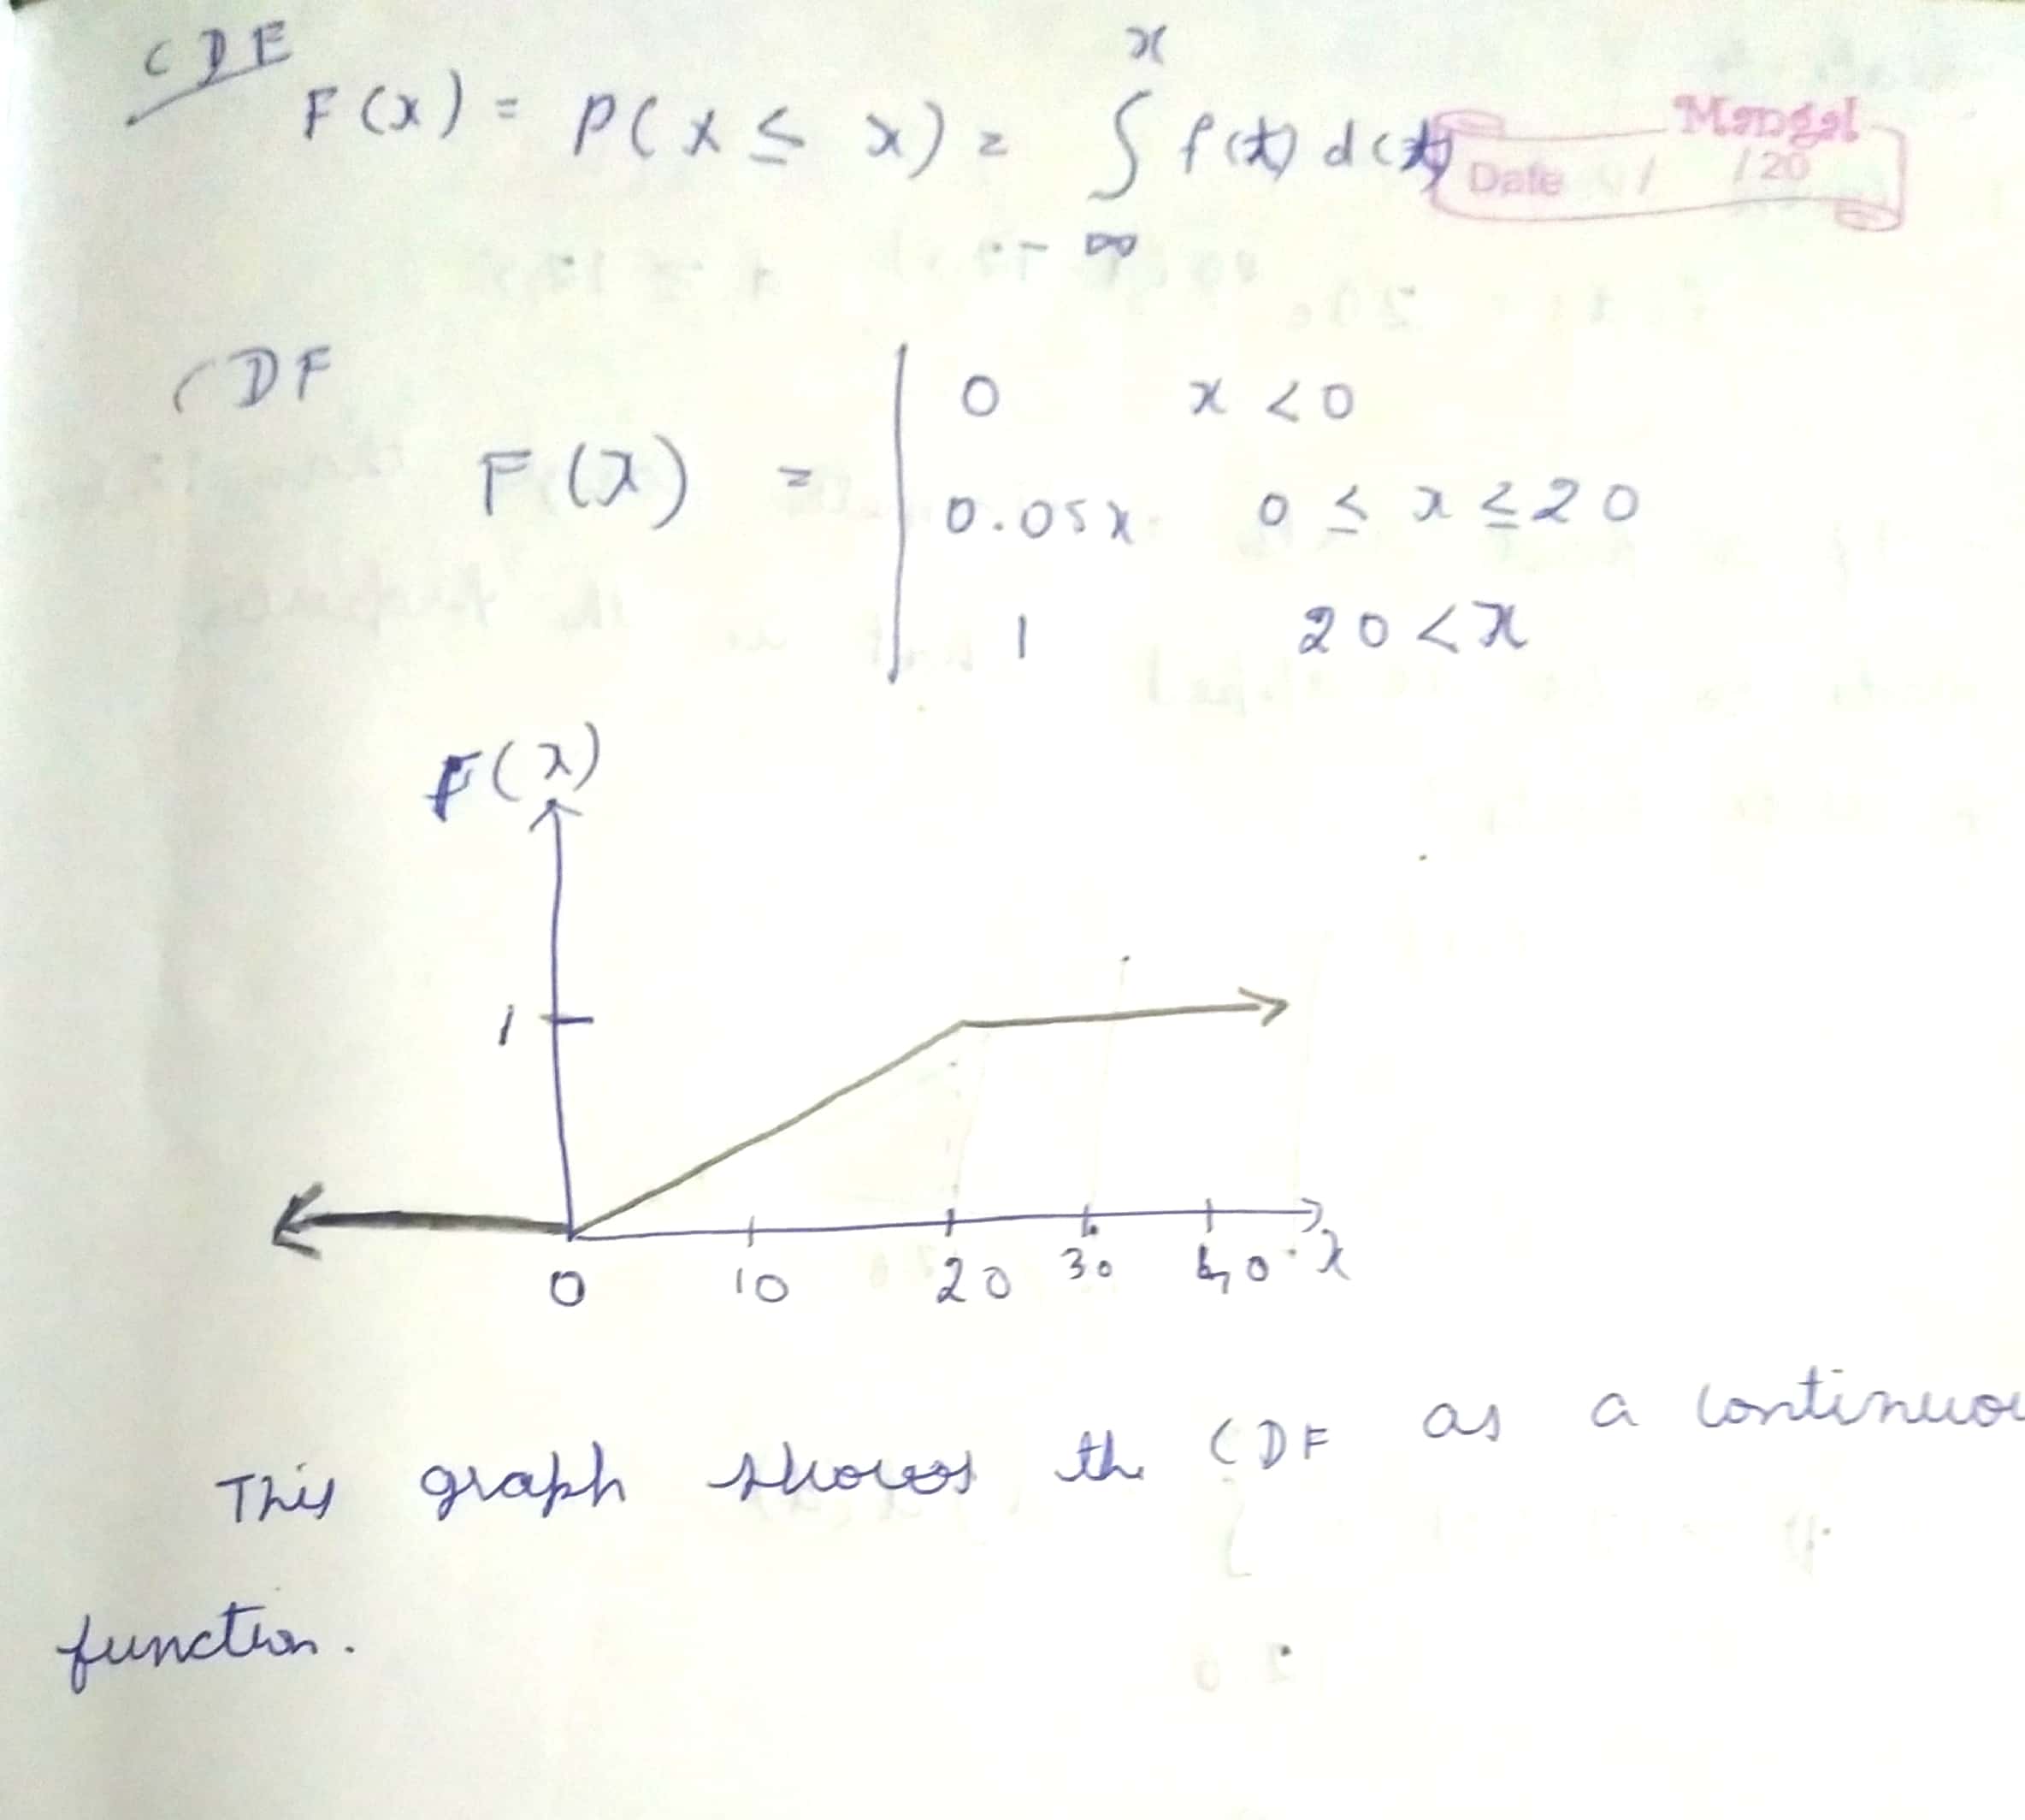 CDF
F(x) = P(X ≤ x) = ∫ f(t) d(t)
x
-∞
Mangal
Date / /20
CDF
F(x) = | 0 x < 0
0.05x 0 ≤ x ≤ 20
1 20 < x
F(x)
1
0 10 20 30 40 x
This graph shows the CDF as a continuou
function.